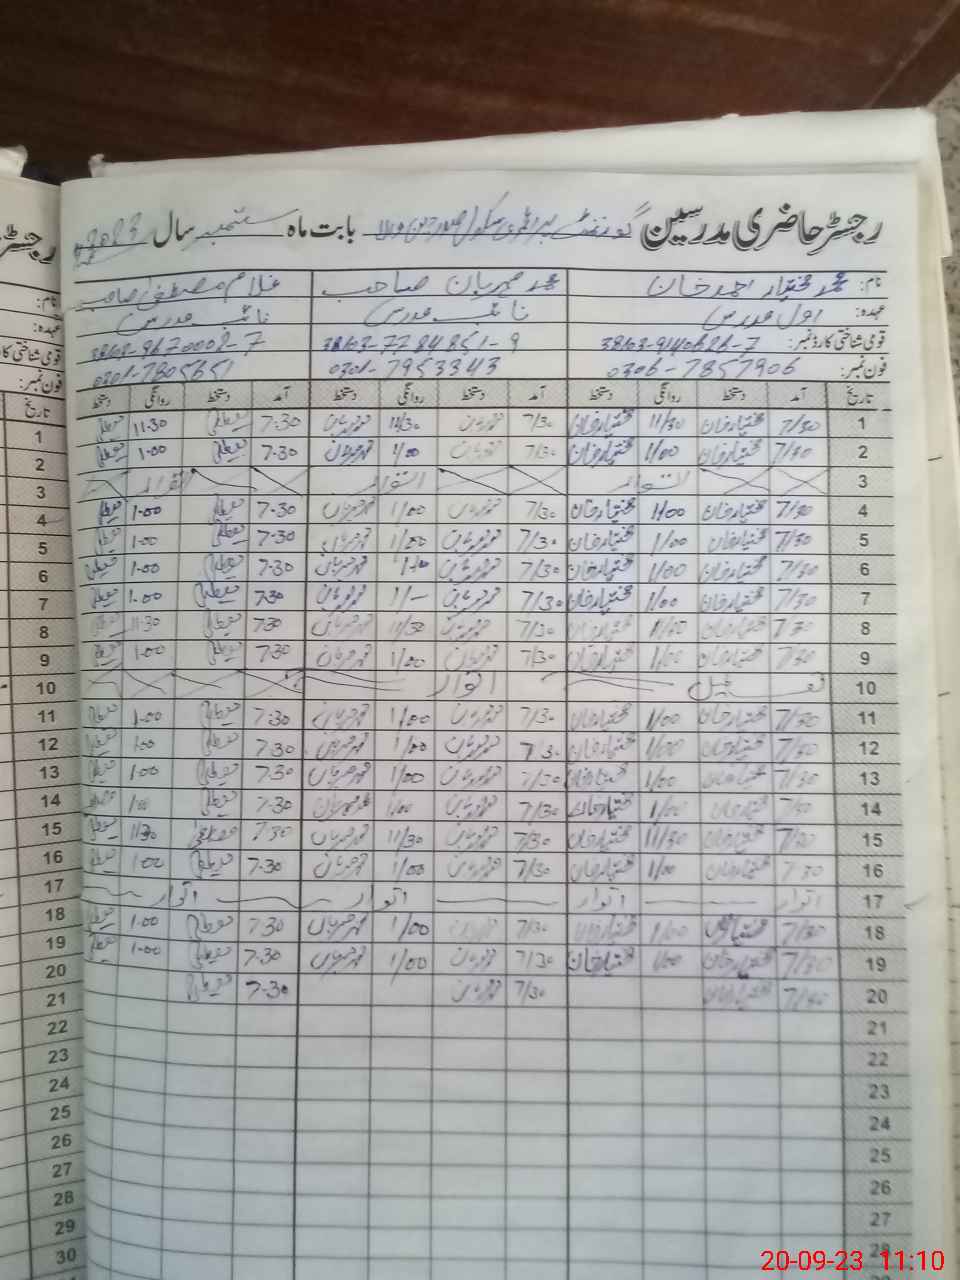 رجسٹر حاضری مدرسین گورنمنٹ پرائمری سکول بابت ماہ ستمبر سال 2023
نام: محمد مختیار احمد خان محمد مہربان صاحب غلام مصطفیٰ صاحب
عہدہ: اول مدرس نائب مدرس نائب مدرس
قومی شناختی کارڈ نمبر:
فون نمبر: 0306-7857906 0301-7953343 0301-7805651
تاریخ آمد دستخط روانگی دستخط آمد دستخط روانگی دستخط آمد دستخط روانگی دستخط
1 7/30 مختیار خان 11/30 مختیار خان 7/30 مہربان 11/30 مہربان 7-30 مصطفی 11-30 مصطفی
2 7/30 مختیار خان 1/00 مختیار خان 7/30 مہربان 1/00 مہربان 7-30 مصطفی 1-00 مصطفی
3 اتوار اتوار اتوار
4 7/30 مختیار خان 1/00 مختیار خان 7/30 مہربان 1/00 مہربان 7-30 مصطفی 1-00 مصطفی
5 7/30 مختیار خان 1/00 مختیار خان 7/30 مہربان 1/00 مہربان 7-30 مصطفی 1-00 مصطفی
6 7/30 مختیار خان 1/00 مختیار خان 7/30 مہربان 1/00 مہربان 7-30 مصطفی 1-00 مصطفی
7 7/30 مختیار خان 1/00 مختیار خان 7/30 مہربان 1/- مہربان 7-30 مصطفی 1-00 مصطفی
8 7/30 مختیار خان مختیار خان 7/30 مہربان 11/30 مہربان 7-30 مصطفی 11-30 مصطفی
9 7/30 مختیار خان 1/00 مختیار خان 7/30 مہربان 1/00 مہربان 7-30 مصطفی 1-00 مصطفی
10 تعطیل اتوار
11 7/30 مختیار خان 1/00 مختیار خان 7/30 مہربان 1/00 مہربان 7-30 مصطفی 1-00 مصطفی
12 7/30 مختیار خان 1/00 مختیار خان 7/30 مہربان 1/00 مہربان 7-30 مصطفی 1-00 مصطفی
13 7/30 مختیار خان 1/00 مختیار خان 7/30 مہربان 1/00 مہربان 7-30 مصطفی 1-00 مصطفی
14 7/30 مختیار خان 1/00 مختیار خان 7/30 مہربان 1/00 محمد مہربان 7-30 مصطفی 1/00 مصطفی
15 7/30 مختیار خان 11/30 مختیار خان 7/30 مہربان 11/30 مہربان 7-30 مصطفی 11-30 مصطفی
16 7/30 مختیار خان 1/00 مختیار خان 7/30 مہربان 1/00 مہربان 7-30 مصطفی 1-00 مصطفی
17 اتوار اتوار اتوار اتوار
18 7/30 مختیار خان 1/00 مختیار خان 7/30 مہربان 1/00 مہربان 7-30 مصطفی 1-00 مصطفی
19 7/30 مختیار خان 1/00 مختیار خان 7/30 مہربان 1/00 مہربان 7-30 مصطفی 1-00 مصطفی
20 7/30 مختیار خان 7/30 مہربان 7-30 مصطفی
21
22
23
24
25
26
27
28
رجسٹر
نام:
عہدہ:
قومی شناختی کارڈ
فون نمبر:
تاریخ
1
2
3
4
5
6
7
8
9
10
11
12
13
14
15
16
17
18
19
20
21
22
23
24
25
26
27
28
29
30
20-09-23 11:10